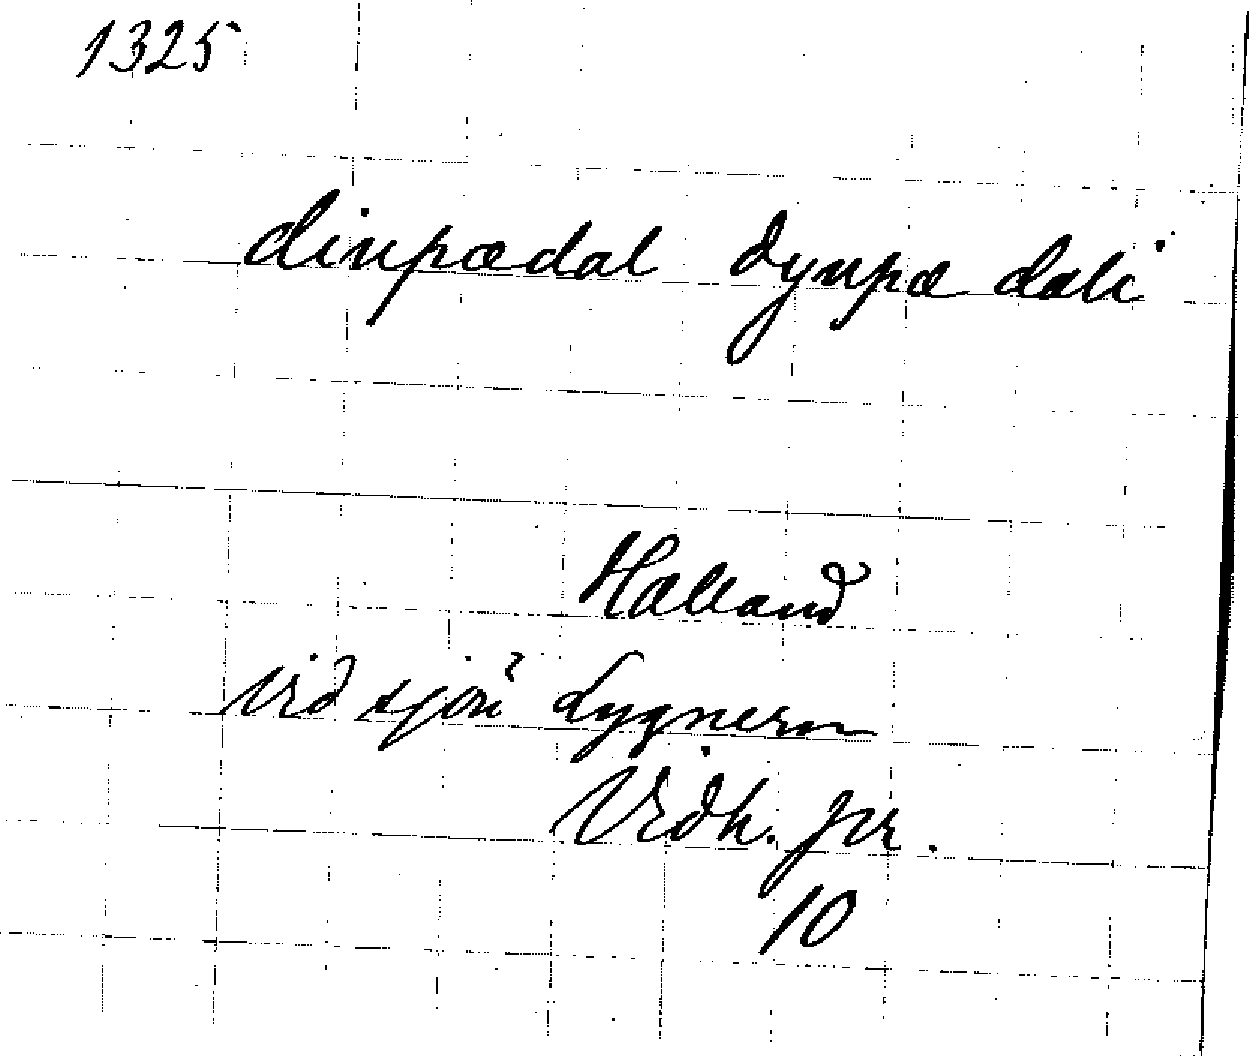 1325
dinpædal dynpæ dali
Halland
vid sjön Lygnern
Vidh. pr.
10